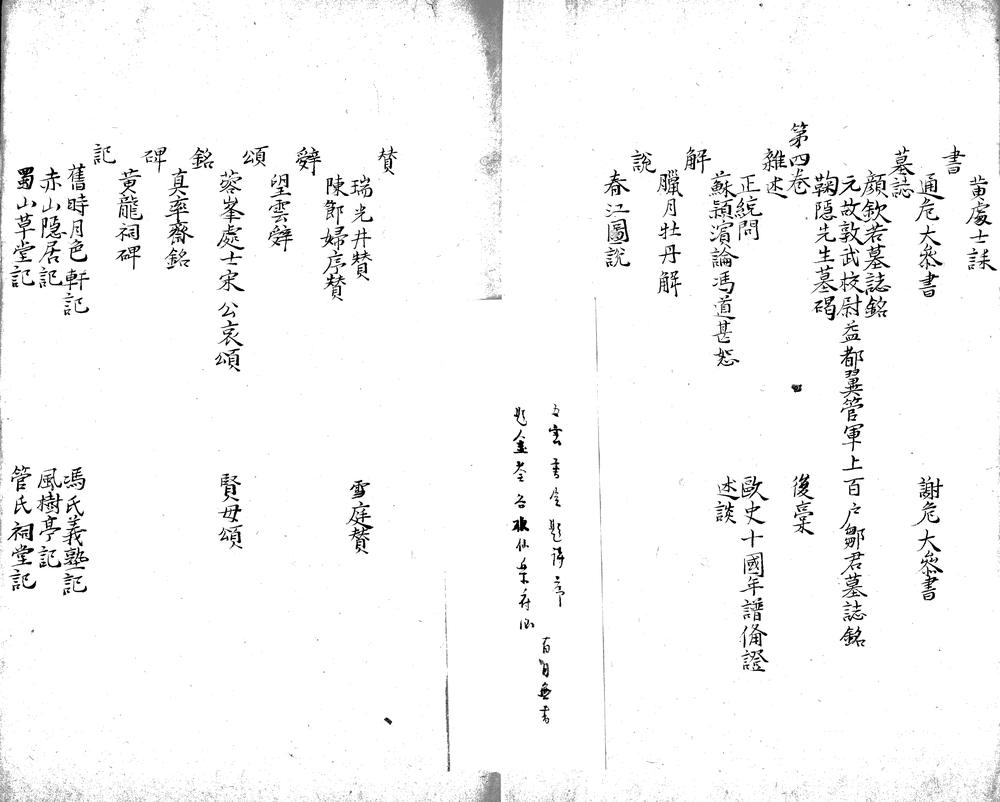 黃處士誄
書
通危大叅書　謝危大叅書
墓誌
顏欽若墓誌銘
元故敦武校尉益都翼管軍上百户鄒君墓誌銘
鞠隐先生墓碣
第四卷　後稾
雜述
正統問　歐史十國年譜俻證
蘇潁濱論馮道甚恕　述談
解
臘月牡丹解
說
春江圖說
贊
瑞光井贊　雪庭贊
陳節婦序贊
辭
望雲辭
頌
蓉峯處士宋公哀頌　賢母頌
銘
真率齋銘
碑
黄龍祠碑
記
舊時月色軒記　馮氏義塾記
赤山隐居記　風樹亭記
蜀山草堂記　管氏祠堂記